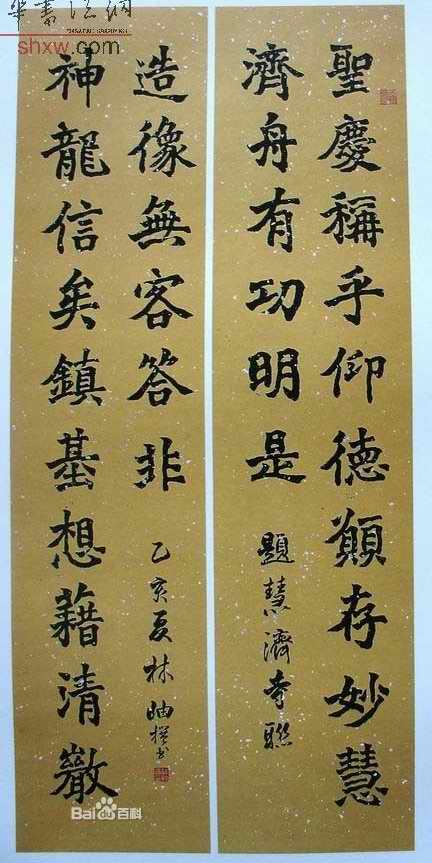 書法網
shxw.com
聖慶稱乎仰德願存妙慧
濟舟有功明是
題慧濟寺聯
神龍信矣鎮基想藉清嚴
造像無客答非
乙亥夏林岫撰書
Bai百科